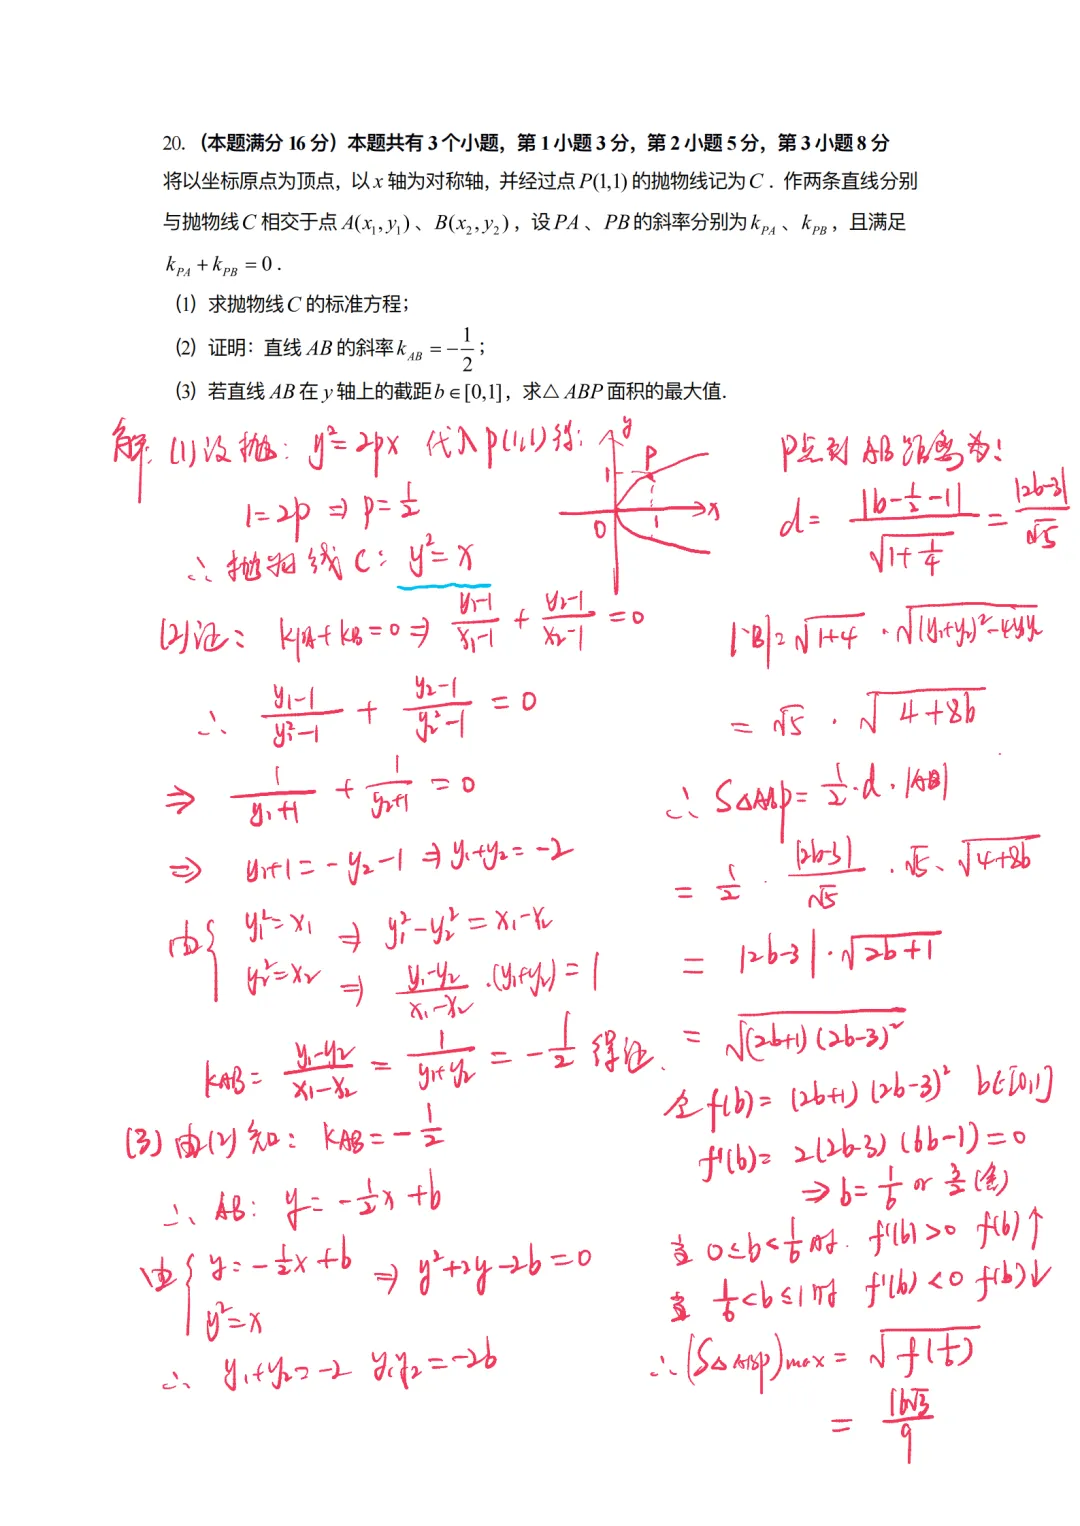 20.（本题满分 16 分）本题共有 3 个小题，第 1 小题 3 分，第 2 小题 5 分，第 3 小题 8 分
将以坐标原点为顶点，以 x 轴为对称轴，并经过点 P(1,1) 的抛物线记为 C．作两条直线分别
与抛物线 C 相交于点 A(x₁, y₁)、B(x₂, y₂)，设 PA、PB 的斜率分别为 k_PA、k_PB，且满足
k_PA + k_PB = 0．
（1）求抛物线 C 的标准方程；
（2）证明：直线 AB 的斜率 k_AB = -1/2；
（3）若直线 AB 在 y 轴上的截距 b∈[0,1]，求△ABP 面积的最大值.
解: (1) 设抛: y²=2px 代入p(1,1)得:
1=2p ⇒ p=1/2
∴ 抛物线 C: y²=x
y
P
1
0
1
x
(2)证: kPA+kPB=0 ⇒ (y₁-1)/(x₁-1) + (y₂-1)/(x₂-1) =0
∴ (y₁-1)/(y₁²-1) + (y₂-1)/(y₂²-1) = 0
⇒ 1/(y₁+1) + 1/(y₂+1) = 0
⇒ y₁+1=-y₂-1 ⇒ y₁+y₂=-2
由{ y₁²=x₁ ⇒ y₁²-y₂²=x₁-x₂
y₂²=x₂ ⇒ (y₁-y₂)/(x₁-x₂)·(y₁+y₂)=1
kAB= (y₁-y₂)/(x₁-x₂) = 1/(y₁+y₂) = -1/2 得证.
(3) 由(2)知: kAB=-1/2
∴ AB: y=-1/2x+b
由{ y=-1/2x+b ⇒ y²+2y-2b=0
y²=x
∴ y₁+y₂=-2 y₁y₂=-2b
P点到 AB 距离为:
d= |b-1/2-1|/√(1+1/4) = |2b-3|/√5
|AB|=√(1+4)·√((y₁+y₂)²-4y₁y₂)
= √5·√(4+8b)
∴ S△ABP=1/2·d·|AB|
= 1/2·|2b-3|/√5·√5·√(4+8b)
= |2b-3|·√(2b+1)
= √((2b+1)(2b-3)²)
令f(b)=(2b+1)(2b-3)² b∈[0,1]
f'(b)=2(2b-3)(6b-1)=0
⇒ b=1/6 or 3/2(舍)
当 0≤b<1/6时. f'(b)>0 f(b)↑
当 1/6<b≤1时 f'(b)<0 f(b)↓
∴ (S△ABP)max=√f(1/6)
= 16√3/9